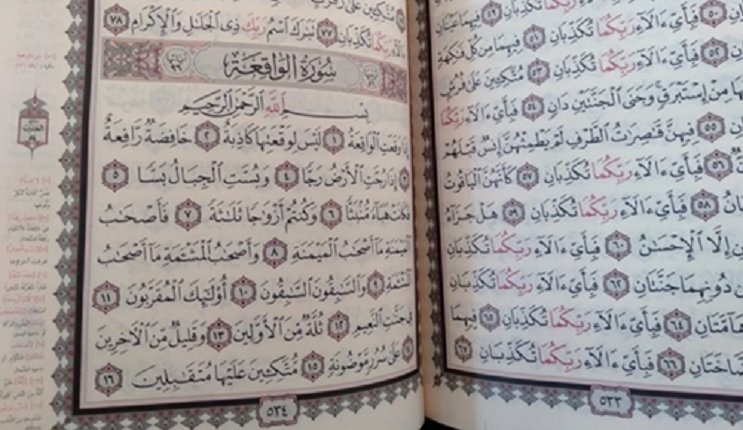 فَبِأَيِّ ءَالَآءِ رَبِّكُمَا تُكَذِّبَانِ ٤٩ فِيهِمَا عَيْنَانِ
٥٠ فَبِأَيِّ ءَالَآءِ رَبِّكُمَا تُكَذِّبَانِ ٥١ فِيهِمَا مِن كُلِّ فَٰكِهَةٍ
٥٢ فَبِأَيِّ ءَالَآءِ رَبِّكُمَا تُكَذِّبَانِ ٥٣ مُتَّكِـِٔينَ عَلَىٰ فُرُشٍۭ
مِنْ إِسْتَبْرَقٍ وَجَنَى ٱلْجَنَّتَيْنِ دَانٍ ٥٤ فَبِأَيِّ ءَالَآءِ رَبِّكُمَا
٥٥ فِيهِنَّ قَٰصِرَٰتُ ٱلطَّرْفِ لَمْ يَطْمِثْهُنَّ إِنسٌ قَبْلَهُمْ
٥٦ فَبِأَيِّ ءَالَآءِ رَبِّكُمَا تُكَذِّبَانِ ٥٧ كَأَنَّهُنَّ ٱلْيَاقُوتُ
٥٨ فَبِأَيِّ ءَالَآءِ رَبِّكُمَا تُكَذِّبَانِ ٥٩ هَلْ جَزَآءُ
إِلَّا ٱلْإِحْسَٰنُ ٦٠ فَبِأَيِّ ءَالَآءِ رَبِّكُمَا تُكَذِّبَانِ
دُونِهِمَا جَنَّتَانِ ٦٢ فَبِأَيِّ ءَالَآءِ رَبِّكُمَا تُكَذِّبَانِ
هَآمَّتَانِ ٦٤ فَبِأَيِّ ءَالَآءِ رَبِّكُمَا تُكَذِّبَانِ ٦٥ فِيهِمَا
ضَّاخَتَانِ ٦٦ فَبِأَيِّ ءَالَآءِ رَبِّكُمَا تُكَذِّبَانِ ٦٧
٥٣٣
مُتَّكِـِٔينَ عَلَىٰ رَفْرَفٍ
رَبِّكُمَا تُكَذِّبَانِ ٧٧ تَبَٰرَكَ ٱسْمُ رَبِّكَ ذِى ٱلْجَلَٰلِ وَٱلْإِكْرَامِ ٧٨
سُورَةُ الْوَاقِعَةِ
بِسْمِ ٱللَّهِ ٱلرَّحْمَٰنِ ٱلرَّحِيمِ
إِذَا وَقَعَتِ ٱلْوَاقِعَةُ ١ لَيْسَ لِوَقْعَتِهَا كَاذِبَةٌ ٢ خَافِضَةٌ رَّافِعَةٌ
٣ إِذَا رُجَّتِ ٱلْأَرْضُ رَجًّا ٤ وَبُسَّتِ ٱلْجِبَالُ بَسًّا ٥
فَكَانَتْ هَبَآءً مُّنۢبَثًّا ٦ وَكُنتُمْ أَزْوَٰجًا ثَلَٰثَةً ٧ فَأَصْحَٰبُ
ٱلْمَيْمَنَةِ مَآ أَصْحَٰبُ ٱلْمَيْمَنَةِ ٨ وَأَصْحَٰبُ ٱلْمَشْـَٔمَةِ مَآ أَصْحَٰبُ
ٱلْمَشْـَٔمَةِ ٩ وَٱلسَّٰبِقُونَ ٱلسَّٰبِقُونَ ١٠ أُو۟لَٰٓئِكَ ٱلْمُقَرَّبُونَ ١١
فِى جَنَّٰتِ ٱلنَّعِيمِ ١٢ ثُلَّةٌ مِّنَ ٱلْأَوَّلِينَ ١٣ وَقَلِيلٌ مِّنَ ٱلْءَاخِرِينَ
١٤ عَلَىٰ سُرُرٍ مَّوْضُونَةٍ ١٥ مُّتَّكِـِٔينَ عَلَيْهَا مُتَقَٰبِلِينَ ١٦
٥٣٤